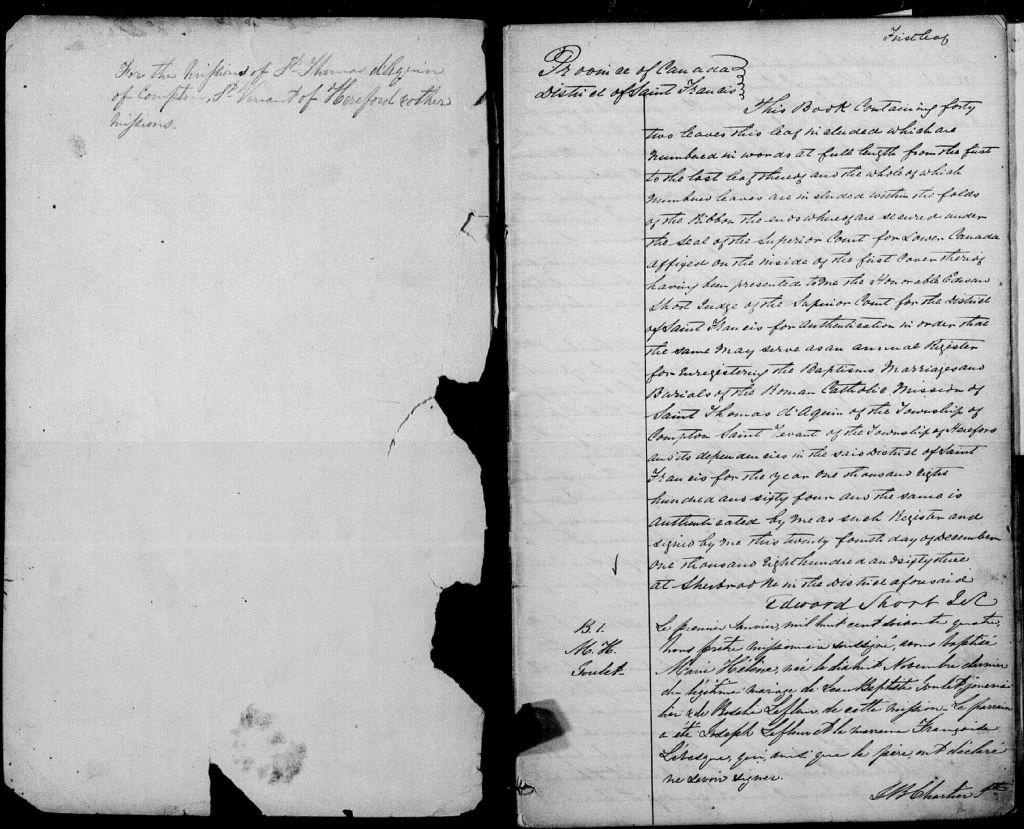 For the Missions of St Thomas d'Aquin
of Compton, St Venant of Hereford & other
missions.
First leaf
Province of Canada
District of Saint Francis
This Book Containing forty
two leaves this leaf included which are
Numbered in words at full length from the first
to the last leaf thereof and the whole of which
Numbered leaves are included within the folds
of the Ribbon the ends whereof are secured under
the seal of the Superior Court for Lower Canada
affixed on the inside of the first Cover thereof
having been presented to me the Honorable Edward
Short Judge of the Superior Court for the District
of Saint Francis for authentication in order that
the same may serve as an annual Register
for Enregistering the Baptisms Marriages and
Burials of the Roman Catholic Mission of
Saint Thomas d'Aquin of the Township of
Compton Saint Venant of the Township of Hereford
and its dependencies in the said District of Saint
Francis for the year One thousand Eight
hundred and sixty four and the same is
authenticated by me as such Register and
signed by me this twenty fourth day of December
One thousand Eight hundred and sixty three
at Sherbrooke in the District aforesaid
Edward Short
B. 1.
M. H.
Goulet
Le premier Janvier, mil huit cent soixante quatre,
Nous prêtre missionnaire soussigné, avons baptisé
Marie Hélène, née le dix huit Novembre dernier
du légitime mariage de Jean Baptiste Goulet journa
lier & de Rosalie Lafleur, de cette mission. Le parrain
a été Joseph Lafleur et la marraine Françoise
Lévesque, qui, ainsi que le père, ont déclaré
ne savoir signer.
J B Chartier Ptre